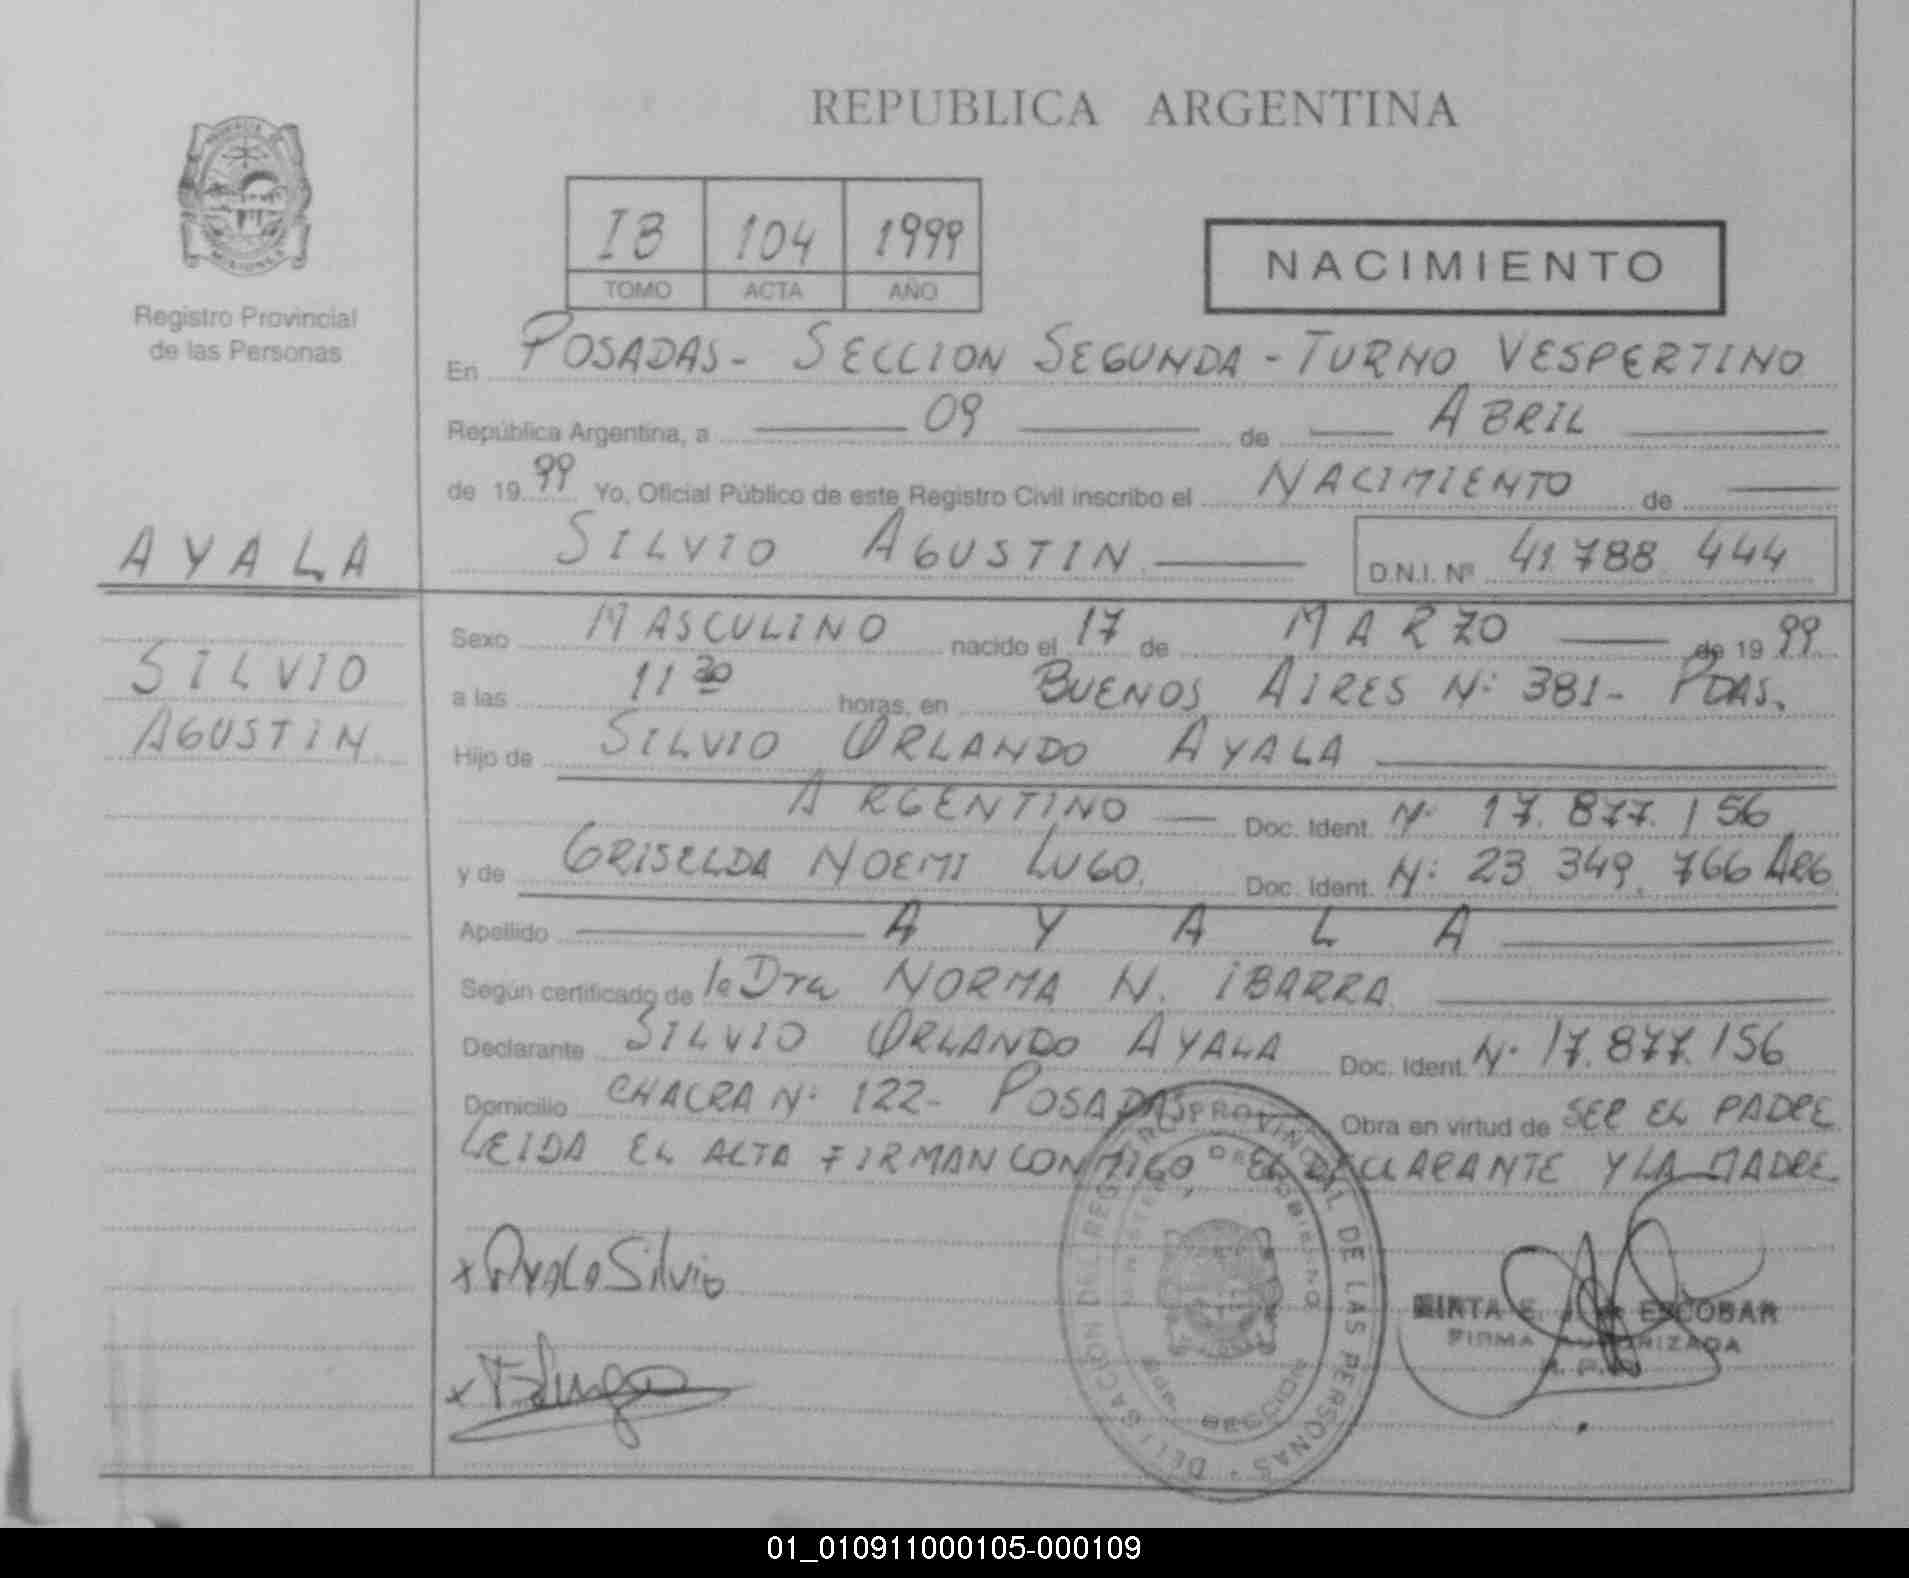 REPUBLICA ARGENTINA
Registro Provincial
de las Personas
IB 104 1999
TOMO ACTA AÑO
NACIMIENTO
En POSADAS - SECCION SEGUNDA - TURNO VESPERTINO
República Argentina, a 09 de ABRIL
de 1999 Yo, Oficial Público de este Registro Civil inscribo el NACIMIENTO de
SILVIO AGUSTIN D.N.I. Nº 41.788.444
AYALA
SILVIO
AGUSTIN
Sexo MASCULINO nacido el 17 de MARZO de 1999
a las 11 30 horas, en BUENOS AIRES Nº 381 - PDAS.
Hijo de SILVIO ORLANDO AYALA
ARGENTINO Doc. Ident. Nº 17.877.156
y de GRISELDA NOEMI LUGO. Doc. Ident. Nº 23.349.766 ARG
Apellido AYALA
Según certificado de la Dra NORMA N. IBARRA
Declarante SILVIO ORLANDO AYALA Doc. Ident. Nº 17.877.156
Domicilio CHACRA Nº 122 - POSADAS Obra en virtud de SER EL PADRE
LEIDA EL ACTA FIRMAN CONMIGO EL DECLARANTE Y LA MADRE
x Ayala Silvio
x Lugo
DELEGACION DEL REGISTRO PROVINCIAL DE LAS PERSONAS
MINISTERIO DE GOBIERNO
SECCION
ESCOBAR
FIRMA AUTORIZADA
MISIONES
01_010911000105-000109